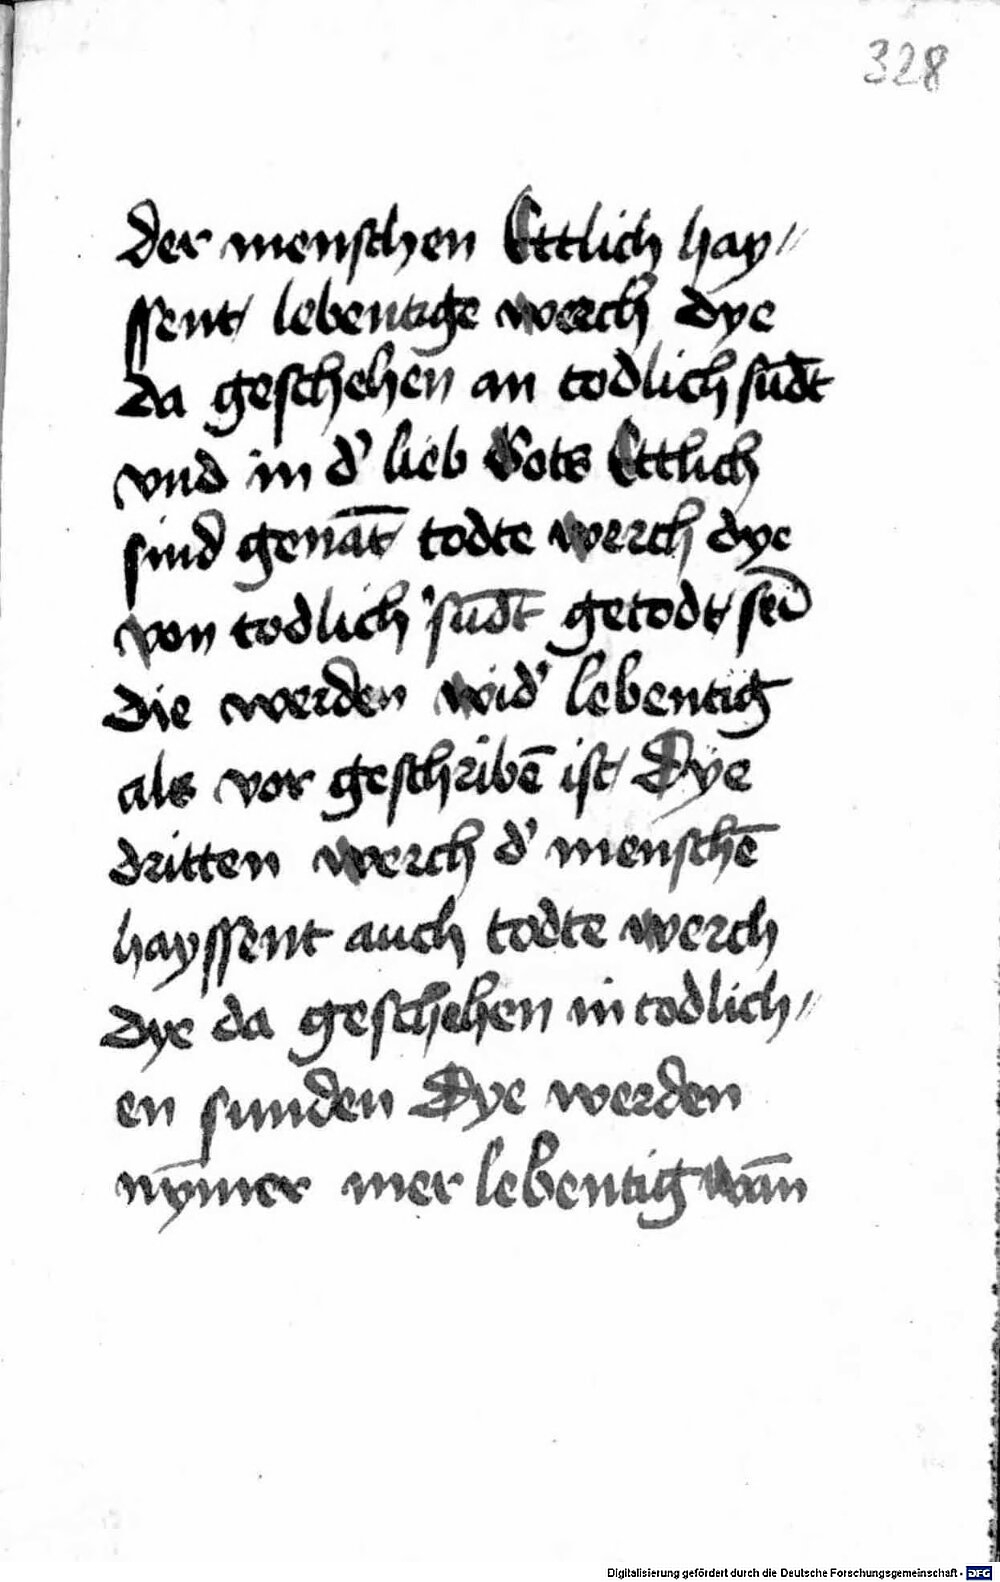 328
der menschen Ettlich hay//
ssent lebentige werch dye
da geschehen an todlich sūdt
vnd in d' lieb Gots Ettlich
sind genāt todte werch dye
von todlich sūdt getodt sei͞d
die werden wid' lebentig
als vor geschribē ist Dye
dritten werch d' menschē
hayssent auch todte werch
dye da geschehen in todlich//
en sunden Dye werden
nȳmer mer lebentig wān
Digitalisierung gefördert durch die Deutsche Forschungsgemeinschaft - DFG